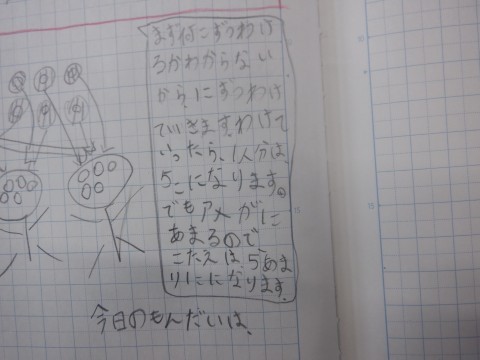 まず何こずつわけ
るかわからない
から、1こずつわけ
ていきます。わけて
いったら、1人分は
5こになります。
でもアメが1こ
あまるので
こたえは、5あま
り1こになります。
今日のもんだいは、